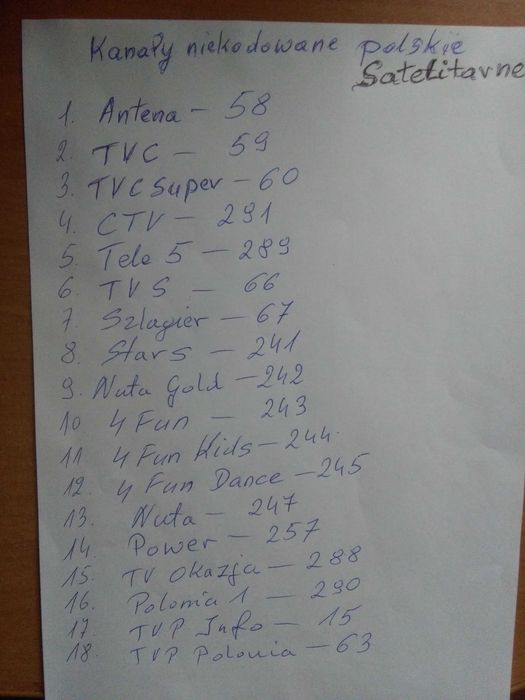 Kanały niekodowane polskie
Satelitarne
1. Antena - 58
2. TVC - 59
3. TVC Super - 60
4. CTV - 291
5. Tele 5 - 289
6 TVS - 66
7 Szlagier - 67
8. Stars - 241
9. Nuta Gold - 242
10 4 Fun - 243
11 4 Fun Kids - 244
12. 4 Fun Dance - 245
13. Nuta - 247
14. Power - 257
15. TV Okazja - 288
16. Polonia 1 - 290
17 TVP Info - 15
18 TVP Polonia - 63